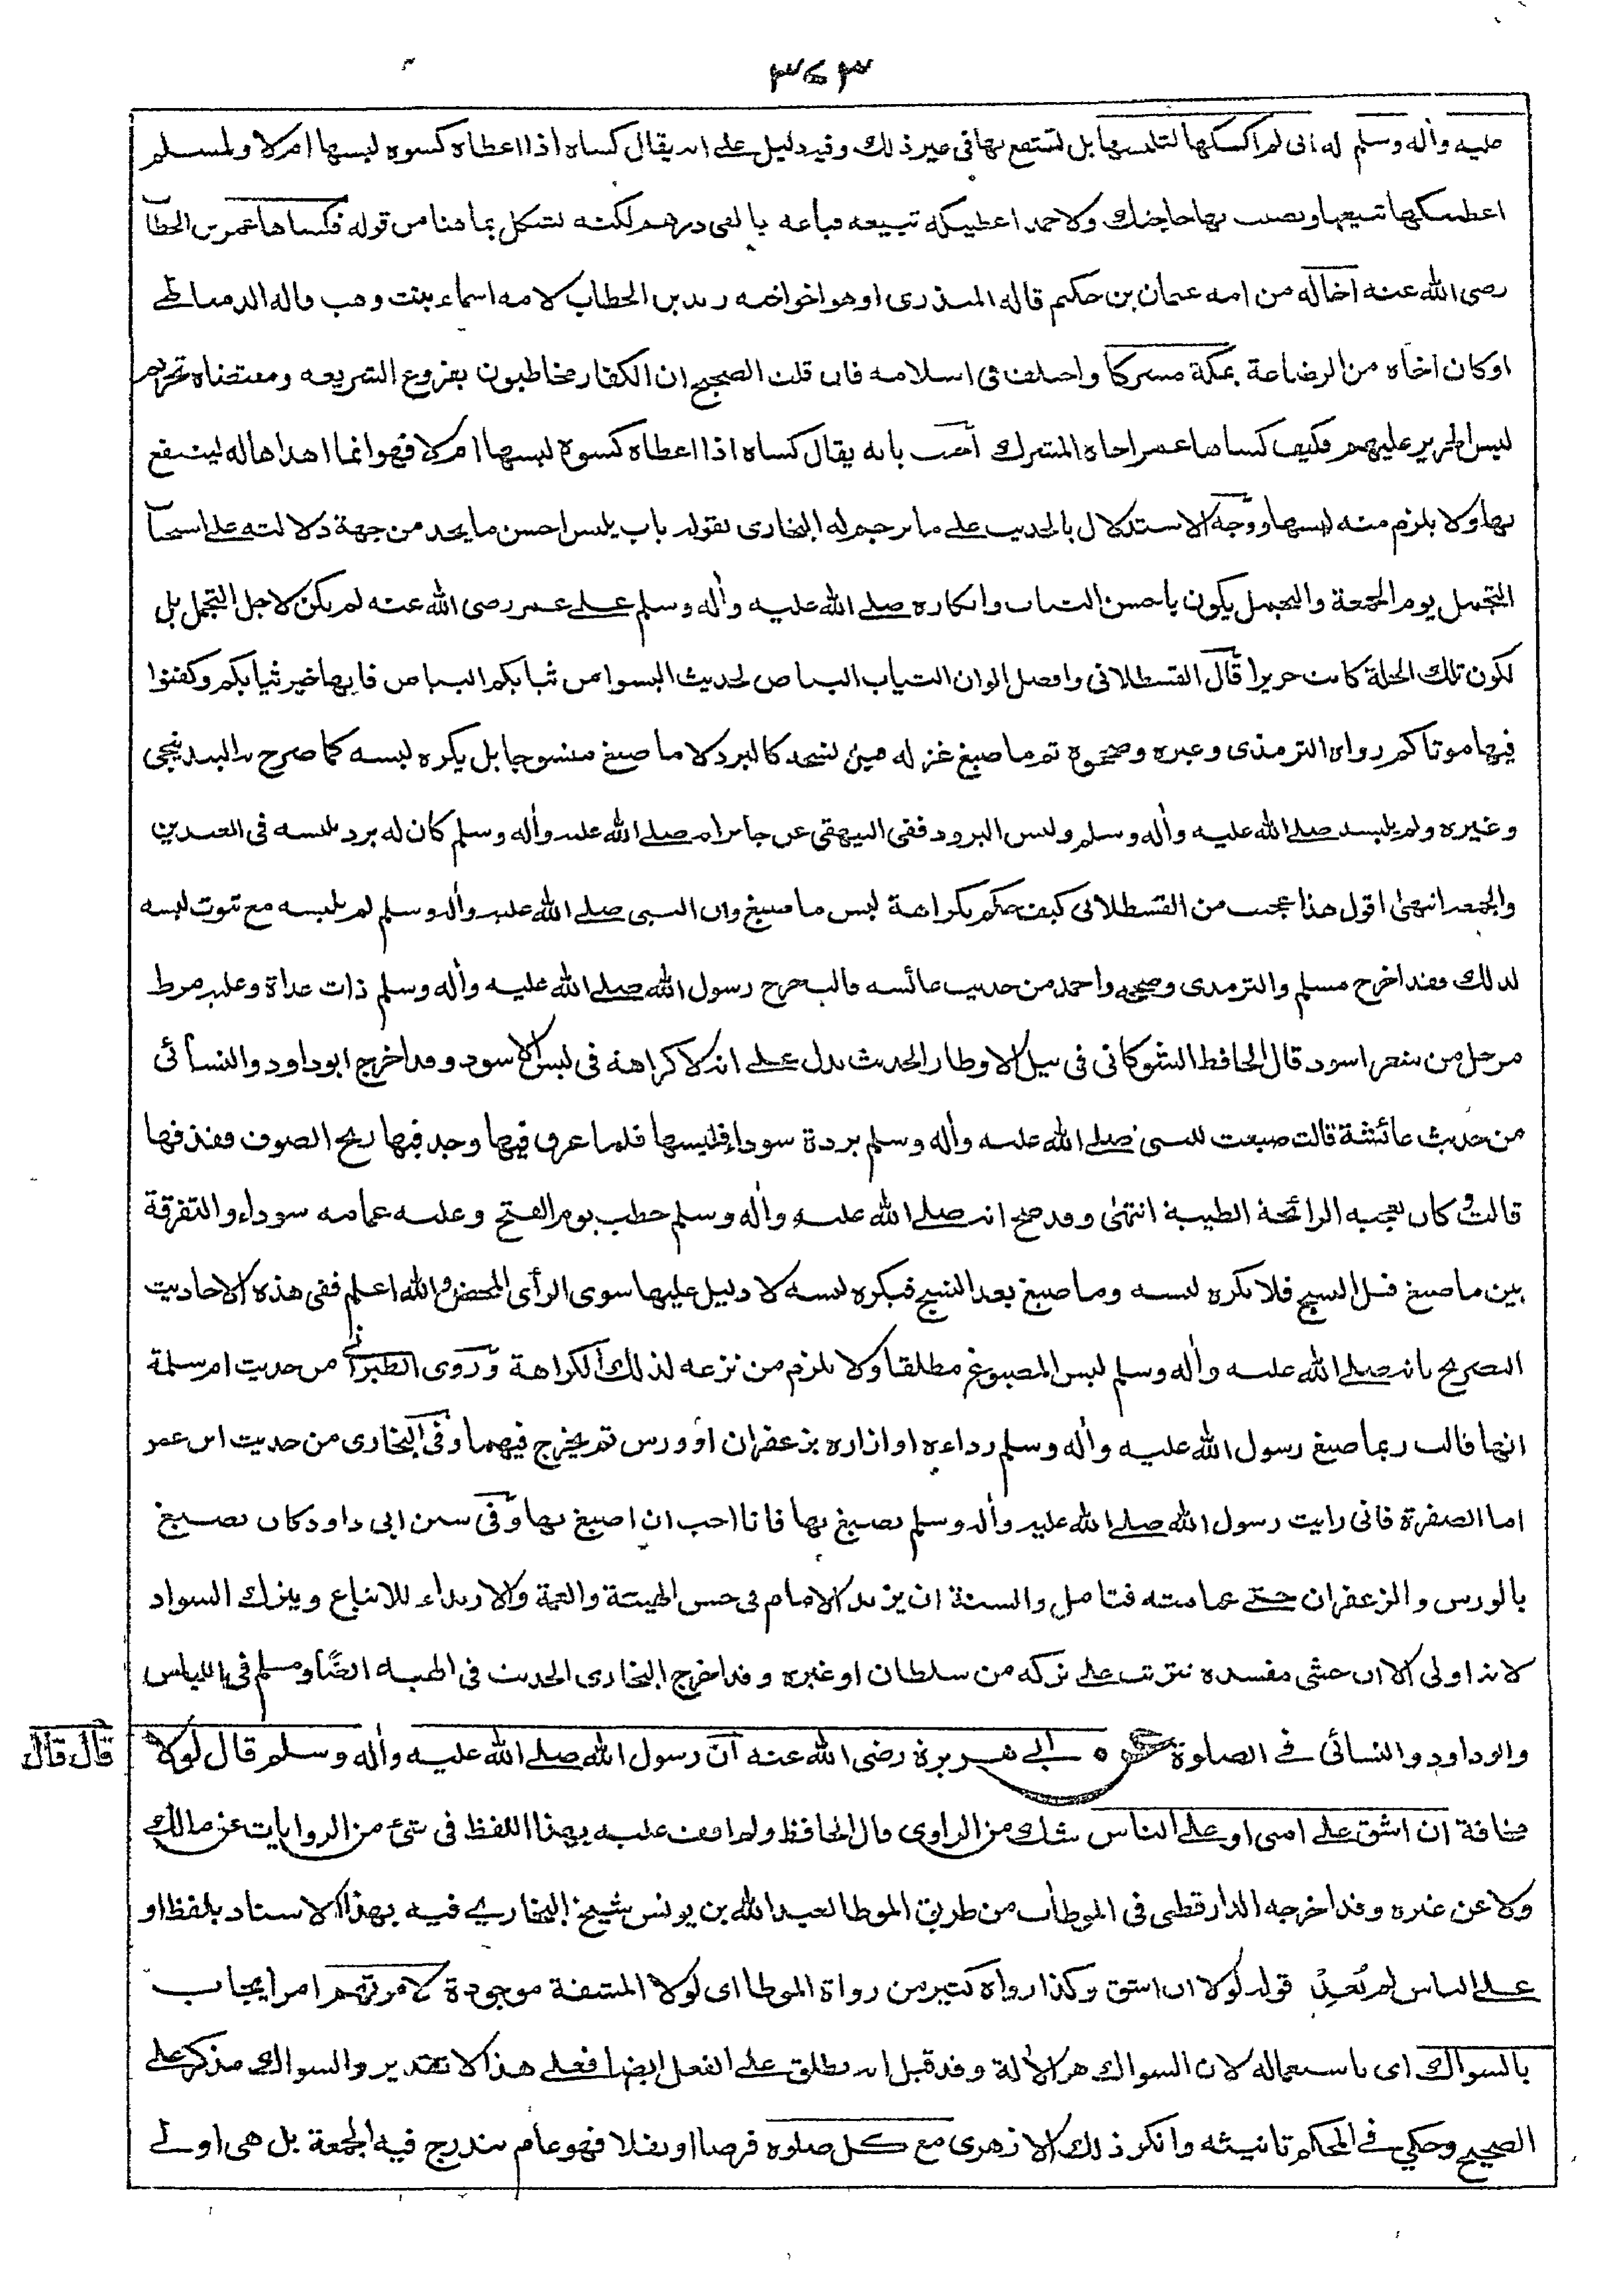 ٣٧٣
عليه واٰله وسلم له انى لم اكسكها لتلبسها بل لتنتفع بها فى غير ذلك وفيه دليل على انه يقال كساه اذا اعطاه كسوه لبسها ام لا ولمسلم
اعطيتكها تبيعها وتصيب بها حاجتك ولاحمد اعطيتكه تبيعه فباعه بالفى درهم لكنه يشكل بما هنا من قوله فكساها عمر بن الخطاب
رضى الله عنه اخا له من امه عثمان بن حكيم قاله المنذرى او هو اخو اخيه زيد بن الخطاب لامه اسماء بنت وهب قاله الدمياطى
او كان اخاه من الرضاعة بمكة مشركا واختلف فى اسلامه فان قلت الصحيح ان الكفار مخاطبون بفروع الشريعه ومقتضاه تحريم
لبس الحرير عليهم فكيف كساها عمر اخاه المشرك اجيب بانه يقال كساه اذا اعطاه كسوة لبسها ام لا فهو انما اهداها له لينتفع
بها ولا يلزم منه لبسها ووجه الاستدلال بالحديث على ما ترجم له البخارى بقوله باب يلبس احسن ما يجد من جهة دلالته على استحباب
التجمل يوم الجمعة والتجمل يكون باحسن الثياب وانكاره صلى الله عليه واٰله وسلم على عمر رضى الله عنه لم يكن لاجل التجمل بل
لكون تلك الحلة كانت حريرا قال القسطلانى وافضل الوان الثياب البياض لحديث البسوا من ثيابكم البياض فانها خير ثيابكم وكفنوا
فيها موتاكم رواه الترمذى وغيره وصححوه ثم ما صبغ غزله قبل نسجه كالبرد لا ما صبغ منسوجا بل يكره لبسه كما صرح به البندنيجى
وغيره ولم يلبسه صلى الله عليه واٰله وسلم ولبس البرود ففى البيهقى عن جابر انه صلى الله عليه واٰله وسلم كان له برد يلبسه فى العيدين
والجمعه انتهى اقول هذا عجيب من القسطلانى كيف حكم بكراهة لبس ما صبغ وان النبى صلى الله عليه واٰله وسلم لم يلبسه مع ثبوت لبسه
لذلك فقد اخرج مسلم والترمذى وصححه واحمد من حديث عائشه قالت خرج رسول الله صلى الله عليه واٰله وسلم ذات غداة وعليه مرط
مرحل من شعر اسود قال الحافظ الشوكانى فى نيل الاوطار الحديث يدل على انه لا كراهة فى لبس الاسود وقد اخرج ابو داود والنسائى
من حديث عائشة قالت صبغت للنبى صلى الله عليه واٰله وسلم بردة سوداء فلبسها فلما عرق فيها وجد فيها ريح الصوف فقذفها
قالت وكان يعجبه الرائحة الطيبة انتهى وقد صح انه صلى الله عليه واٰله وسلم خطب يوم الفتح وعليه عمامه سوداء والتفرقة
بين ما صبغ قبل النسج فلا يكره لبسه وما صبغ بعد النسج فيكره لبسه لا دليل عليها سوى الرأى المحض والله اعلم ففى هذه الاحاديث
التصريح بانه صلى الله عليه واٰله وسلم لبس المصبوغ مطلقا ولا يلزم من نزعه لذلك الكراهة وروى الطبرانى من حديث ام سلمة
انها قالت ربما صبغ رسول الله عليه واٰله وسلم رداءه او ازاره بزعفران او ورس ثم يخرج فيهما وفى البخارى من حديث ابن عمر
اما الصفرة فانى رايت رسول الله صلى الله عليه واٰله وسلم يصبغ بها فانا احب ان اصبغ بها وفى سنن ابى داود كان يصبغ
بالورس والزعفران حتى عمامته فتامل والسنة ان يزيد الامام فى حسن الهيئة والعمة والارتداء للاتباع ويترك السواد
لانه اولى الا ان خشى مفسده تترتب على تركه من سلطان او غيره وقد اخرج البخارى الحديث فى الهبه ايضًا ومسلم فى اللباس
وابو داود والنسائى فى الصلوة عن ابى هريرة رضى الله عنه ان رسول الله صلى الله عليه واٰله وسلم قال لولا
قال قال
مخافة ان اشق على امتى او على الناس شك من الراوى قال الحافظ ولم اقف عليه بهذا اللفظ فى شئ من الروايات عن مالك
ولا عن غيره وقد اخرجه الدارقطى فى الموطأت من طريق الموطا لعبد الله بن يونس شيخ البخارى فيه بهذا الاسناد بلفظ او
على الناس لم يُعِدْ قوله لولا ان اشق وكذا رواه كثير من رواة الموطا اى لولا المشقة موجودة لامرتهم امر ايجاب
بالسواك اى باستعماله لان السواك هو الاٰلة وقد قيل انه يطلق على الفعل ايضا فعلى هذا لا تقدير والسواك مذكر على
الصحيح وحكى فى المحكم تانيثه وانكر ذلك الازهرى مع كل صلوه فرضا او نفلا فهو عام يندرج فيه الجمعة بل هى اولى